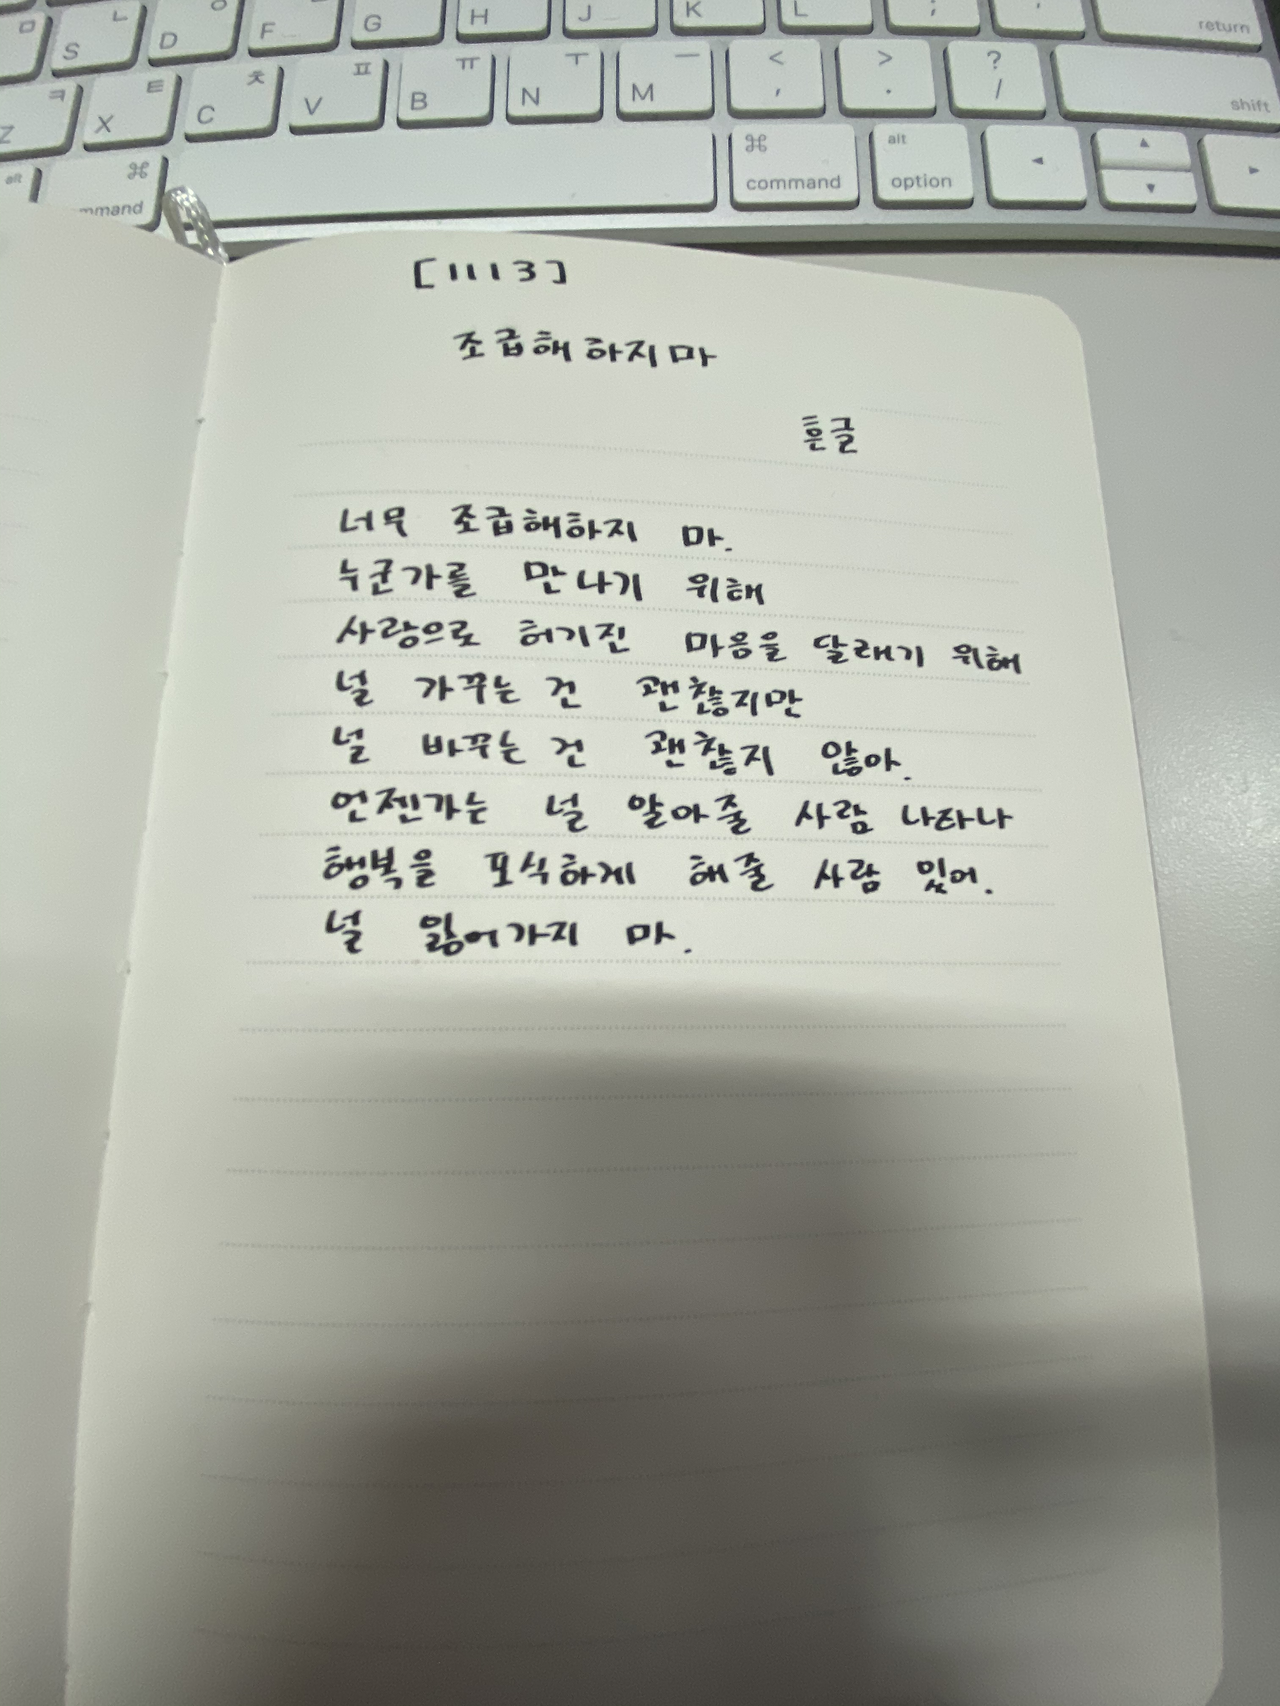 ㅁ S ㄴ D ㅇ F G H J K L ; ' return
ㅋ Z ㅌ X ㅊ C ㅍ V ㅠ B ㅜ N ㅡ M < , > . ? / shift
alt ⌘ command ⌘ command alt option ◀ ▲ ▼ ▶
[1113]
조급해하지마
흔글
너무 조급해하지 마.
누군가를 만나기 위해
사랑으로 허기진 마음을 달래기 위해
널 가꾸는 건 괜찮지만
널 바꾸는 건 괜찮지 않아.
언젠가는 널 알아줄 사람 나타나
행복을 포식하게 해줄 사람 있어.
널 잃어가지 마.